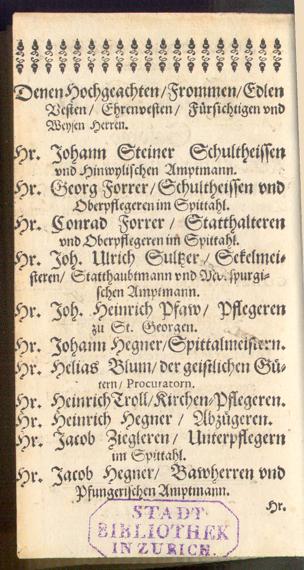 Denen Hochgeachten/Frommen/Edlen
Vesten/ Ehrenvesten/ Fürsichtigen vnd
Weysen Herren.
Hr. Johann Steiner Schultheissen
vnd Hinwylischen Amptmann.
Hr. Georg Forrer/Schultheissen vnd
Oberpflegeren im Spittahl.
Hr. Conrad Forrer/ Statthalteren
vnd Oberpflegeren im Spittahl.
Hr. Joh. Ulrich Sultzer/ Seckelmei-
steren/ Statthaubtmann vnd
schen Amptmann.
Hr. Joh. Heinrich Pfaw/ Pflegeren
zu St. Georgen.
Hr. Johann Hegner/Spittalmeistern.
Hr. Helias Blum/ der geistlichen Gü-
tern/ Procuratorn.
Hr. Heinrich Troll/Kirchen/Pflegeren.
Hr. Heinrich Hegner / Abzügeren.
Hr. Jacob Ziegleren/ Unterpflegern
im Spittahl.
Hr. Jacob Hegner/ Bawherren vnd
Pfungerischen Amptmann.
Hr.
STADT
BIBLIOTHEK
IN ZÜRICH.